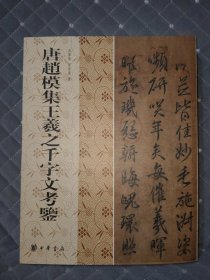 唐趙模集王羲之千字文考鑒
並皆佳妙毛施淑姿
嚬妍咲年矢每催羲暉
曜旋璣懸斡晦魄環照
中華書局